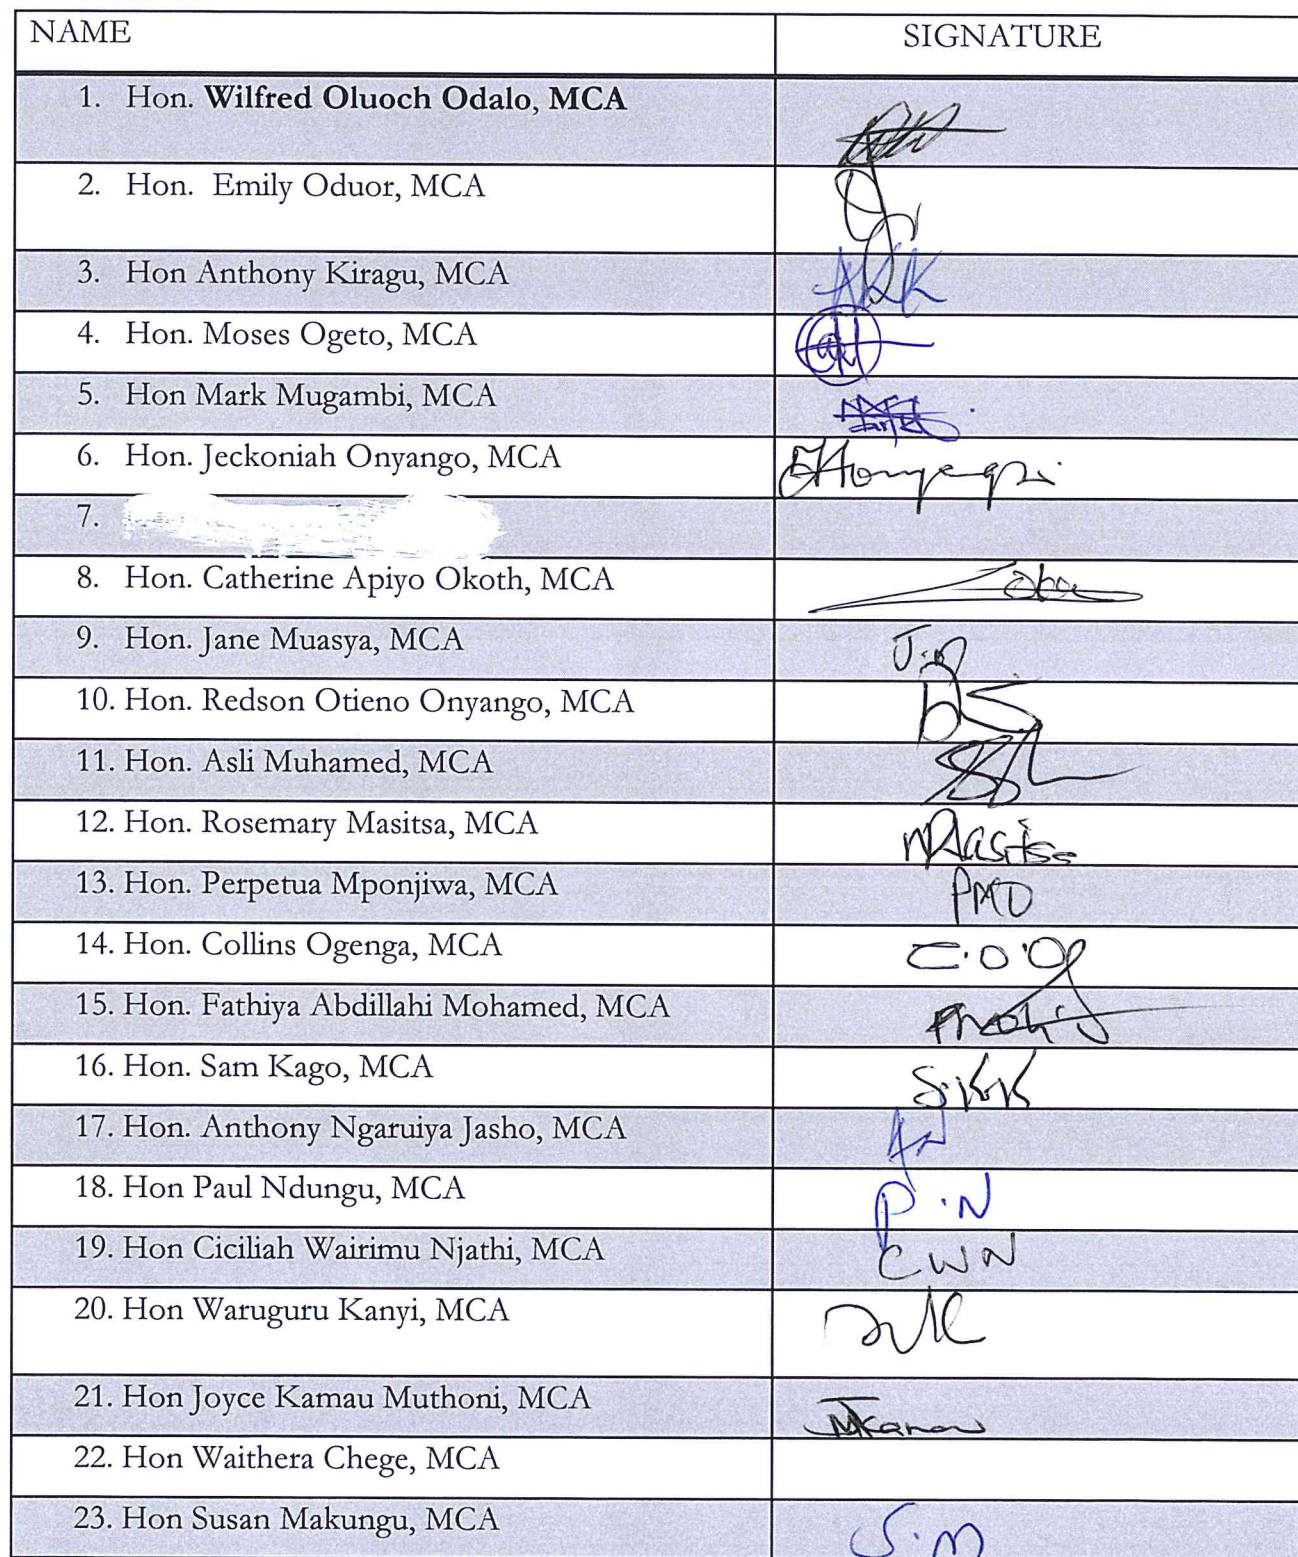 NAME SIGNATURE
1. Hon. Wilfred Oluoch Odalo, MCA
2. Hon. Emily Oduor, MCA
3. Hon Anthony Kiragu, MCA AKK
4. Hon. Moses Ogeto, MCA
5. Hon Mark Mugambi, MCA
6. Hon. Jeckoniah Onyango, MCA
7.
8. Hon. Catherine Apiyo Okoth, MCA
9. Hon. Jane Muasya, MCA J.M
10. Hon. Redson Otieno Onyango, MCA
11. Hon. Asli Muhamed, MCA
12. Hon. Rosemary Masitsa, MCA
13. Hon. Perpetua Mponjiwa, MCA PMD
14. Hon. Collins Ogenga, MCA C.O.O
15. Hon. Fathiya Abdillahi Mohamed, MCA
16. Hon. Sam Kago, MCA S.K.K
17. Hon. Anthony Ngaruiya Jasho, MCA AN
18. Hon Paul Ndungu, MCA P.N
19. Hon Ciciliah Wairimu Njathi, MCA CWN
20. Hon Waruguru Kanyi, MCA
21. Hon Joyce Kamau Muthoni, MCA
22. Hon Waithera Chege, MCA
23. Hon Susan Makungu, MCA S.M